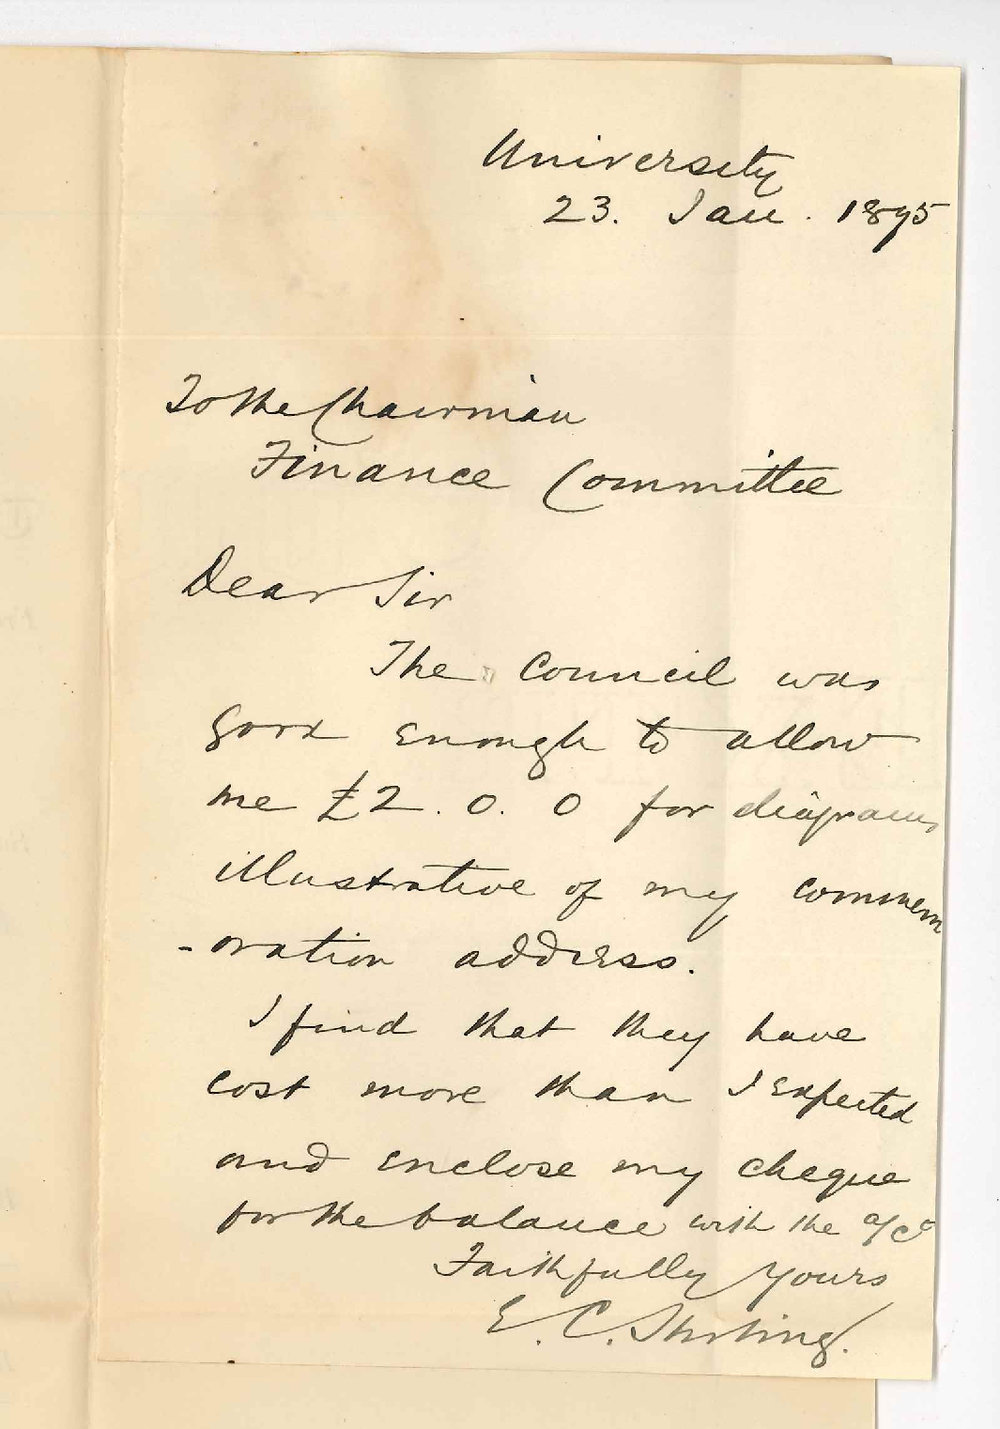 University
23. Jan. 1895
To the Chairman
Finance Committee
Dear Sir
The Council was
good enough to allow
me £2. 0. 0 for diagrams
illustrative of my commem
-oration address.
I find that they have
cost more than I expected
and enclose my cheque
for the balance with the a/c
Faithfully yours
E. C. Stirling.